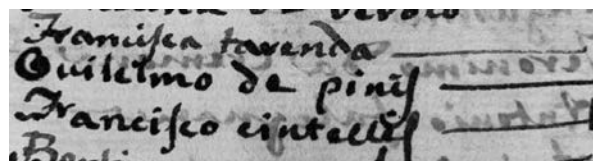 de
Francisca tarenda
Guilelmo de pinis
Francisco cintellis